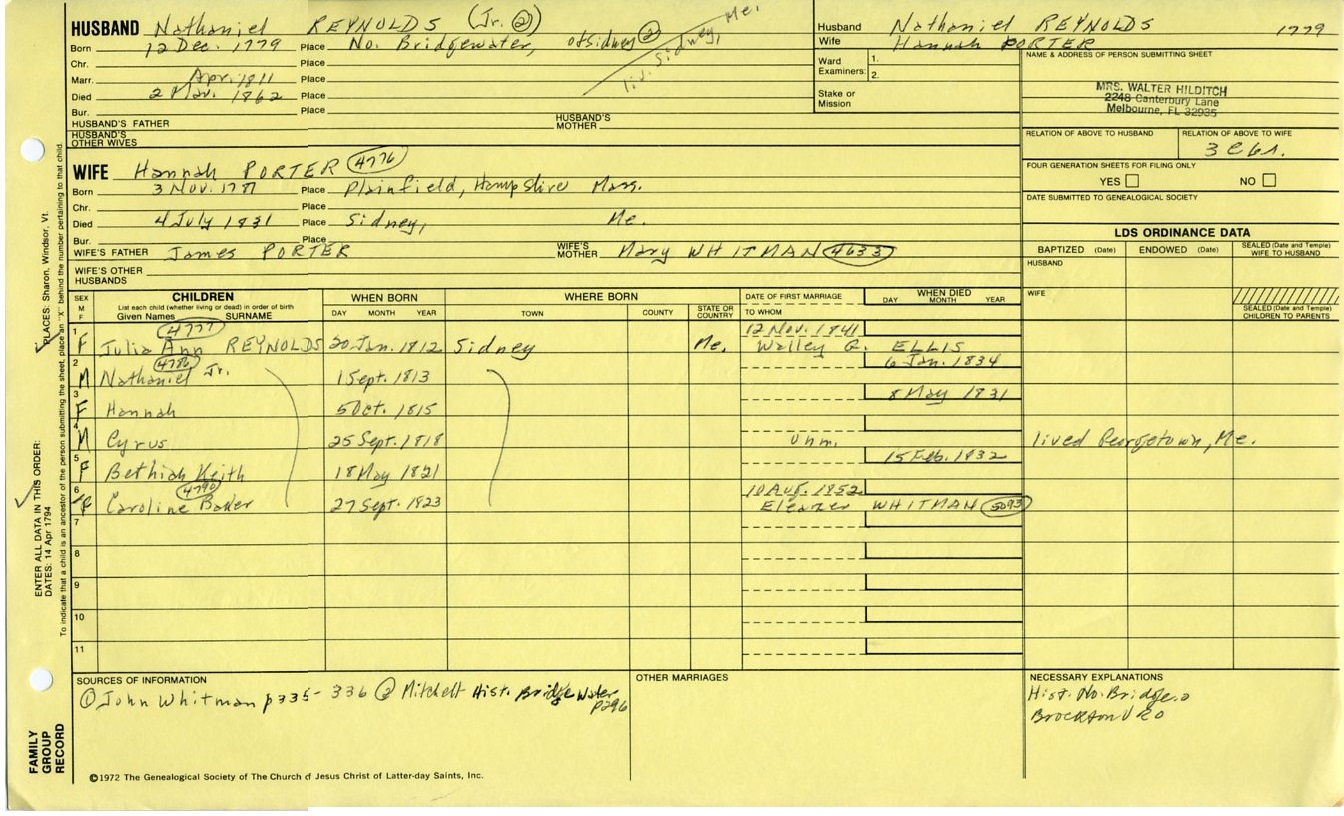 HUSBAND Nathaniel REYNOLDS (Jr. ②)
Born 12 Dec. 1779 Place No. Bridgewater, of Sidney ②
liv. Sidney, Me.
Chr. Place
Marr. Apr. 1811 Place
Died 2 Mar. 1862 Place
Bur. Place
HUSBAND'S FATHER HUSBAND'S MOTHER
HUSBAND'S OTHER WIVES
WIFE Hannah PORTER 4776
Born 3 Nov. Place Plainfield, Hampshire Mass.
Chr. Place
Died 4 July 1831 Place Sidney, Me.
Bur. Place
WIFE'S FATHER James PORTER WIFE'S MOTHER Mary WHITMAN 4633
WIFE'S OTHER HUSBANDS
Husband Nathaniel REYNOLDS 1779
Wife Hannah PORTER
Ward Examiners: 1.
2.
Stake or Mission
NAME & ADDRESS OF PERSON SUBMITTING SHEET
MRS. WALTER HILDITCH
2248 Canterbury Lane
Melbourne, FL 32935
RELATION OF ABOVE TO HUSBAND RELATION OF ABOVE TO WIFE
3 C 6 r.
FOUR GENERATION SHEETS FOR FILING ONLY
YES NO
DATE SUBMITTED TO GENEALOGICAL SOCIETY
LDS ORDINANCE DATA
BAPTIZED (Date) ENDOWED (Date) SEALED (Date and Temple) WIFE TO HUSBAND
HUSBAND
WIFE
SEALED (Date and Temple) CHILDREN TO PARENTS
SEX M F CHILDREN WHEN BORN WHERE BORN DATE OF FIRST MARRIAGE WHEN DIED
List each child (whether living or dead) in order of birth
Given Names SURNAME DAY MONTH YEAR TOWN COUNTY STATE OR COUNTRY TO WHOM DAY MONTH YEAR
4777 12 Nov. 1841
1 F Julia Ann REYNOLDS 20 Jan. 1812 Sidney Me. ELLIS
4786 6 Jan. 1834
2 M Nathaniel Jr. 1 Sept. 1813
8 May 1831
3 F Hannah 5 Oct. 1815
4 M Cyrus 25 Sept. 1818 Unm. lived Georgetown, Me.
15 Feb. 1832
5 F Bethiah Keith 18 May 1821
4790 10 Aug. 1852
6 F Caroline Baker 27 Sept. 1823 Eleazer WHITMAN 5093
7
8
9
10
11
SOURCES OF INFORMATION
① John Whitman p335-336 ② Mitchell Hist. Bridgewater p296
OTHER MARRIAGES
NECESSARY EXPLANATIONS
Hist. No. Bridge.
Brockton VR
©1972 The Genealogical Society of The Church of Jesus Christ of Latter-day Saints, Inc.
PLACES: Sharon, Windsor, Vt.
ENTER ALL DATA IN THIS ORDER:
DATES: 14 Apr 1794
To indicate that a child is an ancestor of the person submitting the sheet, place an "X" behind the number pertaining to that child.
FAMILY GROUP RECORD